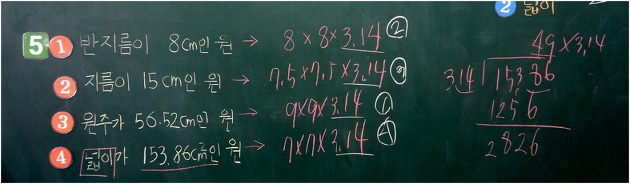 2 넓이
5 1 반지름이 8cm인 원 → 8×8×3.14 2
2 지름이 15cm인 원 → 7.5×7.5×3.14 3
3 원주가 56.52cm인 원 → 9×9×3.14 1
4 넓이가 153.86cm²인 원 → 7×7×3.14 4
49×3.14
3.14 153.86
1256
2826